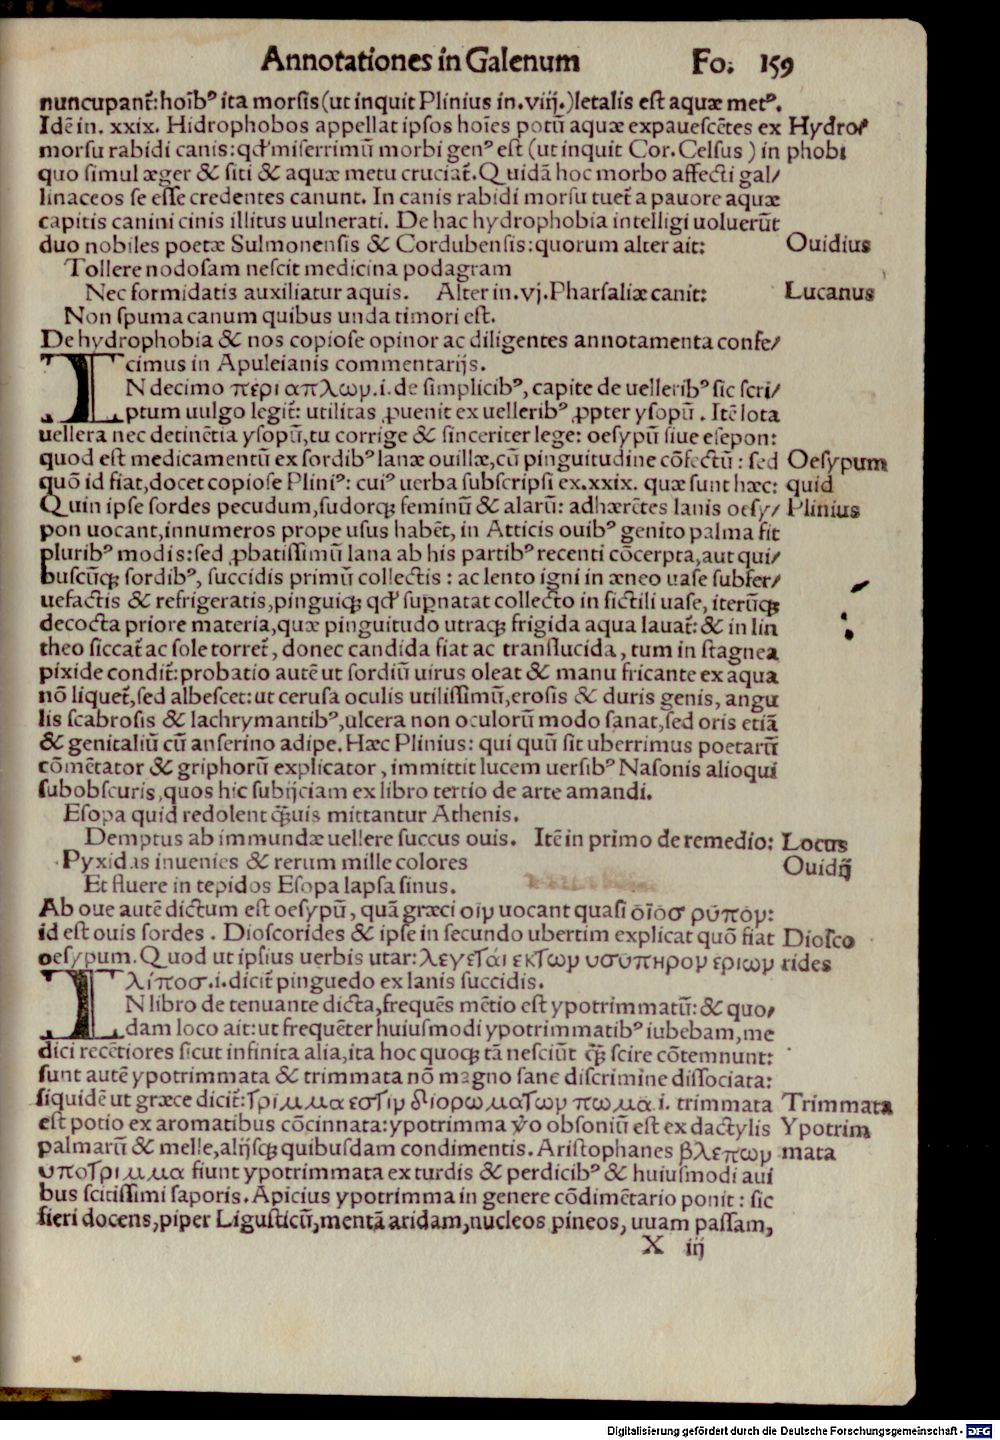 Annotationes in Galenum Fo. 159
nuncupant᷑: hoībꝰ ita morsis (ut inquit Plinius in. viij.) letalis est aquæ metꝰ.
Idē in. xxix. Hidrophobos appellat ipsos hoīes potū aquæ expauescētes ex
morsu rabidi canis: qđ miserrimū morbi genꝰ est (ut inquit Cor. Celsus) in
quo simul æger & siti & aquæ metu cruciat᷑. Quidā hoc morbo affecti gal/
linaceos se esse credentes canunt. In canis rabidi morsu tuet᷑ a pauore aquæ
capitis canini cinis illitus uulnerati. De hac hydrophobia intelligi uoluerūt
duo nobiles poetæ Sulmonensis & Cordubensis: quorum alter ait:
Tollere nodosam nescit medicina podagram
Nec formidatis auxiliatur aquis. Alter in. vj. Pharsaliæ canit:
Non spuma canum quibus unda timori est.
De hydrophobia & nos copiose opinor ac diligentes annotamenta confe/
cimus in Apuleianis commentarijs.
IN decimo περι απλωμ .i. de simplicibꝰ, capite de uelleribꝰ sic scri/
ptum uulgo legit᷑: utilitas ꝓuenit ex uelleribꝰ ꝓpter ysopū. Itē lota
uellera nec detinētia ysopū, tu corrige & sinceriter lege: oesypū siue esepon:
quod est medicamentū ex sordibꝰ lanæ ouillæ, cū pinguitudine cōfectū: sed
quō id fiat, docet copiose Pliniꝰ: cuiꝰ uerba subscripsi ex. xxix. quæ sunt hæc:
Quin ipse sordes pecudum, sudorqꝫ feminū & alarū: adhærētes lanis oesy/
pon uocant, innumeros prope usus habēt, in Atticis ouibꝰ genito palma fit
pluribꝰ modis: sed ꝓbatissimū lana ab his partibꝰ recenti cōcerpta, aut qui/
buscūqꝫ sordibꝰ, succidis primū collectis: ac lento igni in æneo uase subfer/
uefactis & refrigeratis, pinguiqꝫ qđ suꝑnatat collecto in fictili uase, iterūqꝫ
decocta priore materia, quæ pinguitudo utraqꝫ frigida aqua lauat᷑: & in lin
theo siccat᷑ ac sole torret᷑, donec candida fiat ac translucida, tum in stagnea
pixide condit᷑: probatio autē ut sordiū uirus oleat & manu fricante ex aqua
nō liquet᷑, sed albescet: ut cerusa oculis utilissimū, erosis & duris genis, angu
lis scabrosis & lachrymantibꝰ, ulcera non oculorū modo sanat, sed oris etiā
& genitaliū cū anserino adipe. Hæc Plinius: qui quū sit uberrimus poetarū
cōmētator & griphorū explicator, immittit lucem uersibꝰ Nasonis alioqui
subobscuris, quos hic subijciam ex libro tertio de arte amandi.
Esopa quid redolent q̄ꝫuis mittantur Athenis.
Demptus ab immundæ uellere succus ouis. Itē in primo de remedio:
Pyxidas inuenies & rerum mille colores
Et fluere in tepidos Esopa lapsa sinus.
Ab oue autē dictum est oesypū, quā græci οἰμ uocant quasi ὀῖὸσ ρὑπομ:
id est ouis sordes. Dioscorides & ipse in secundo ubertim explicat quō fiat
oesypum. Quod ut ipsius uerbis utar: λεγεται εκτωμ υσυπηρομ εριωμ
λίποσ .i. dicit᷑ pinguedo ex lanis succidis.
IN libro de tenuante dicta, frequēs mētio est ypotrimmatū: & quo/
dam loco ait: ut frequēter huiusmodi ypotrimmatibꝰ iubebam, me
dici recētiores sicut infinita alia, ita hoc quoqꝫ tā nesciūt q̄ꝫ scire cōtemnunt:
sunt autē ypotrimmata & trimmata nō magno sane discrimine dissociata:
siquidē ut græce dicit᷑: τριμμα εστιμ διορωματωμ πωμα .i. trimmata
est potio ex aromatibus cōcinnata: ypotrimma ỽo obsoniū est ex dactylis
palmarū & melle, alijsqꝫ quibusdam condimentis. Aristophanes βλεπωμ
υποτριμμα fiunt ypotrimmata ex turdis & perdicibꝰ & huiusmodi aui
bus scitissimi saporis. Apicius ypotrimma in genere cōdimētario ponit: sic
fieri docens, piper Ligusticū, mentā aridam, nucleos pineos, uuam passam,
X iij
Hydro/
phobi
Ouidius
Lucanus
Oesypum
quid
Plinius
Locus
Ouidij
Diosco
rides
Trimmata
Ypotrim
mata
Digitalisierung gefördert durch die Deutsche Forschungsgemeinschaft - DFG